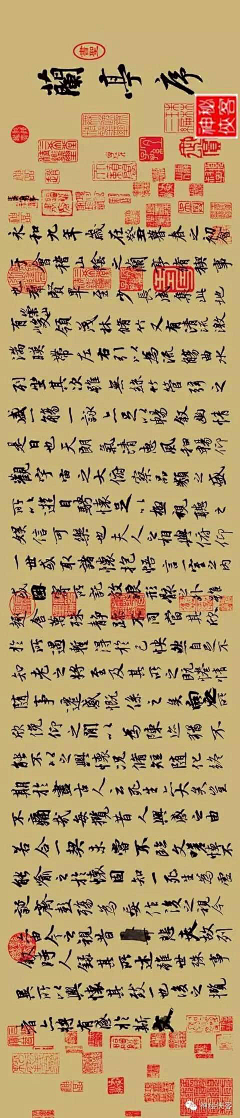 書聖
蘭亭序
神秘俠客
永和九年歲在癸丑暮春之初會
于會稽山陰之蘭亭脩稧事
也羣賢畢至少長咸集此地
有崇山峻領茂林脩竹又有清流激
湍暎帶左右引以為流觴曲水
列坐其次雖無絲竹管弦之
盛一觴一詠亦足以暢敘幽情
是日也天朗氣清惠風和暢仰
觀宇宙之大俯察品類之盛
所以遊目騁懷足以極視聽之
娛信可樂也夫人之相與俯仰
一世或取諸懷抱悟言一室之內
或因寄所託放浪形骸之外雖
趣舍萬殊靜躁不同當其欣
於所遇蹔得於己怏然自足不
知老之將至及其所之既惓情
隨事遷感慨係之矣向之所
欣俛仰之閒以為陳迹猶不
能不以之興懷況脩短隨化終
期於盡古人云死生亦大矣豈
不痛哉每攬昔人興感之由
若合一契未嘗不臨文嗟悼不
能喻之於懷固知一死生為虛
誕齊彭殤為妄作後之視今
亦由今之視昔悲夫故列
敘時人錄其所述雖世殊事
異所以興懷其致一也後之攬
者亦將有感於斯文